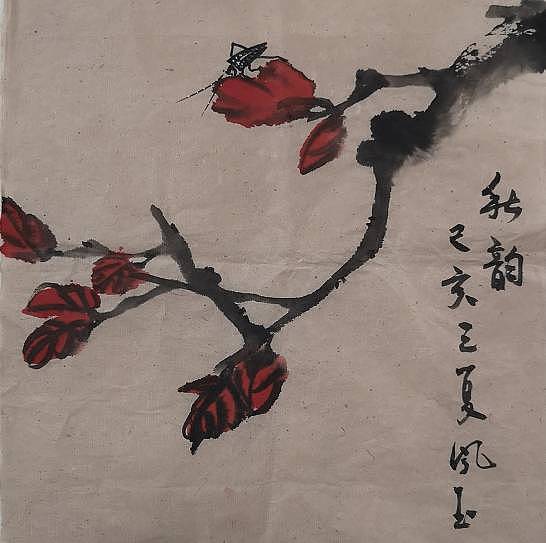 秋韵
己亥之夏风玉